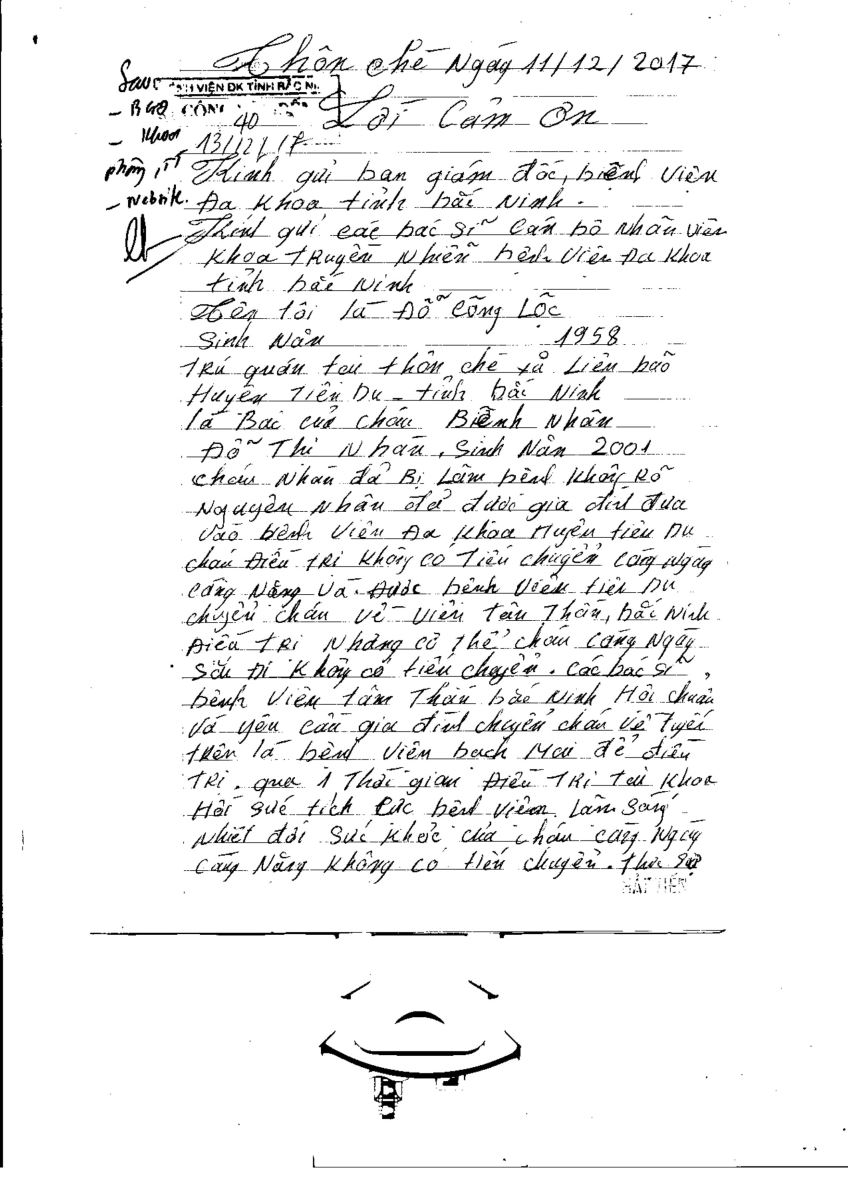 Thôn chè Ngáy 11/12/2017
Sao
VIỆN ĐK TỈNH BẮC NI
- BGĐ CÔN
Lời Cảm Ơn
40
- Khoa
13/12/17
phòng
Kính gửi ban giám đốc, biênh Viên
- Website.
Đa Khoa tỉnh bắc Ninh.
Kính gửi các bác Sĩ Cán bô Nhân Viên
Khoa TRuyền Nhiễn bênh Viên Đa Khoa
tỉnh bắc Ninh
Tên tôi là Đỗ Công Lốc
Sinh Năn 1958
TRú quán tai thôn chè xả Liên bảo
Huyên Tiên Du - tỉnh bắc Ninh
là Bac của cháu Biềnh Nhân
Đỗ Thi Nhàn, Sinh Năn 2001
cháu Nhàn đả Bị Lâm bênh Không Rỏ
Nguyên Nhân đả được gia đình đưa
Vào bênh Viên Đa Khoa Huyên tiên Du
cháu Điều TRi Không co Tiến chuyển Càng Ngày
Càng Nặng Và Được bênh Viên tiên Du
chuyển cháu Về Viên tân Thần, bắc Ninh
Điều TRi Nhưng cơ thể cháu Càng Ngày
Sấu Đi Không có tiến chuyển. Các bác Sĩ,
bênh Viên tâm Thần bắc Ninh Hôi chuẩn
Và yêu cầu gia đình chuyển cháu Về Tuyến
tRên là bênh Viên bach Mai để điều
TRi. qua 1 Thời gian Điều TRi tai Khoa
Hồi Sức tích Cực bênh Viêm Lâm Sàng
Nhiệt đới Sức Khỏe của cháu Càng Ngày
Càng Nặng Không có tiến chuyển. Thưc Sự